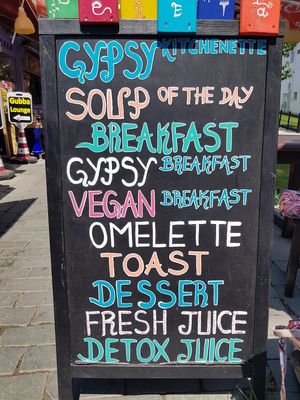 GYPSY KITCHENETTE
SOUP OF THE DAY
BREAKFAST
GYPSY BREAKFAST
VEGAN BREAKFAST
OMELETTE
TOAST
DESSERT
FRESH JUICE
DETOX JUICE
Gubba
Lounge